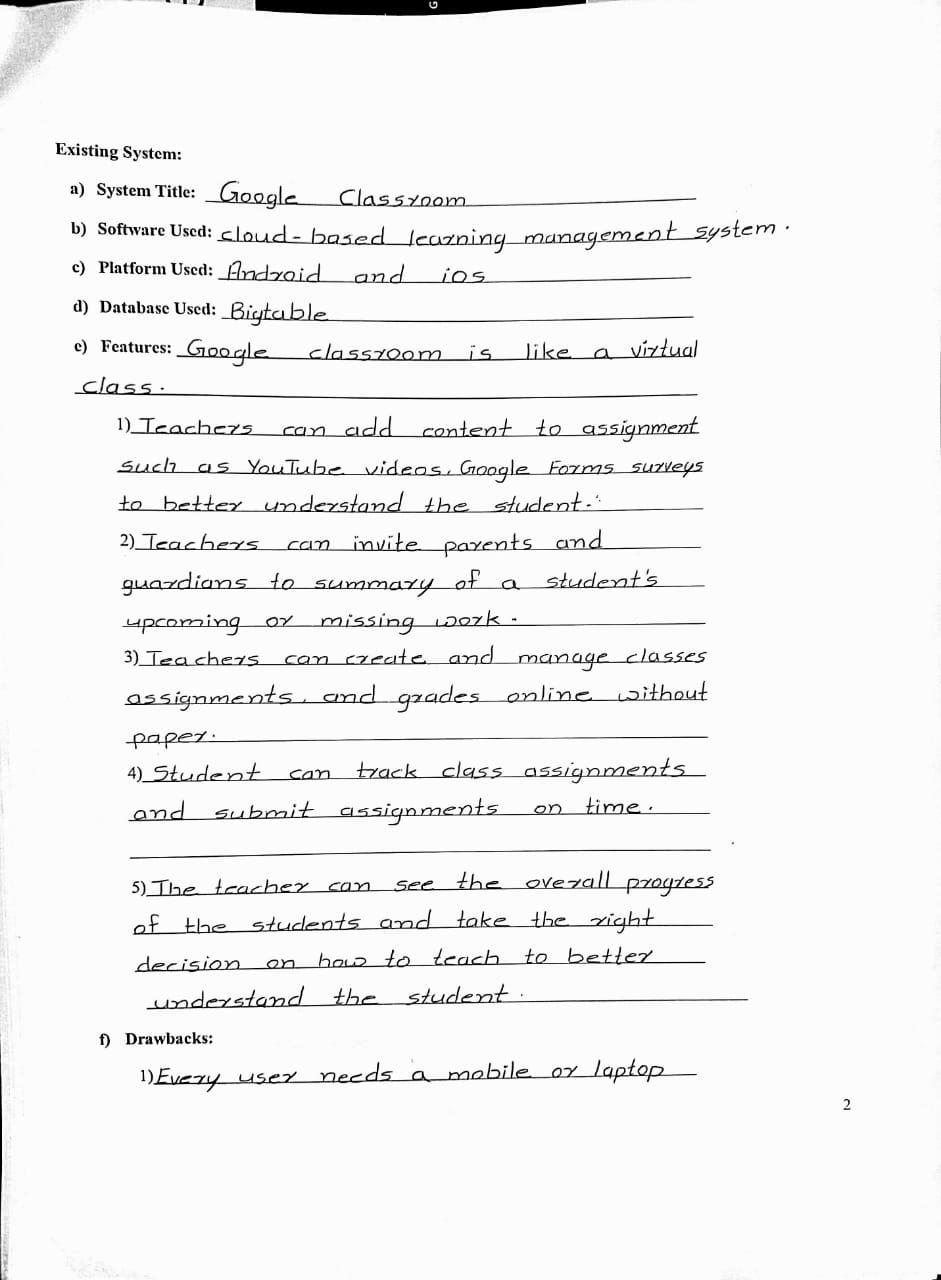 Existing System:
a) System Title: Google Classroom
b) Software Used: cloud-based learning management system.
c) Platform Used: Android and ios
d) Database Used: Bigtable
e) Features: Google classroom is like a virtual
class.
1) Teachers can add content to assignment
such as YouTube videos, Google Forms surveys
to better understand the student.
2) Teachers can invite parents and
guardians to summary of a student's
upcoming or missing work.
3) Teachers can create and manage classes
assignments, and grades online without
paper.
4) Student can track class assignments
and submit assignments on time.
5) The teacher can see the overall progress
of the students and take the right
decision on how to teach to better
understand the student.
f) Drawbacks:
1) Every user needs a mobile or laptop
2